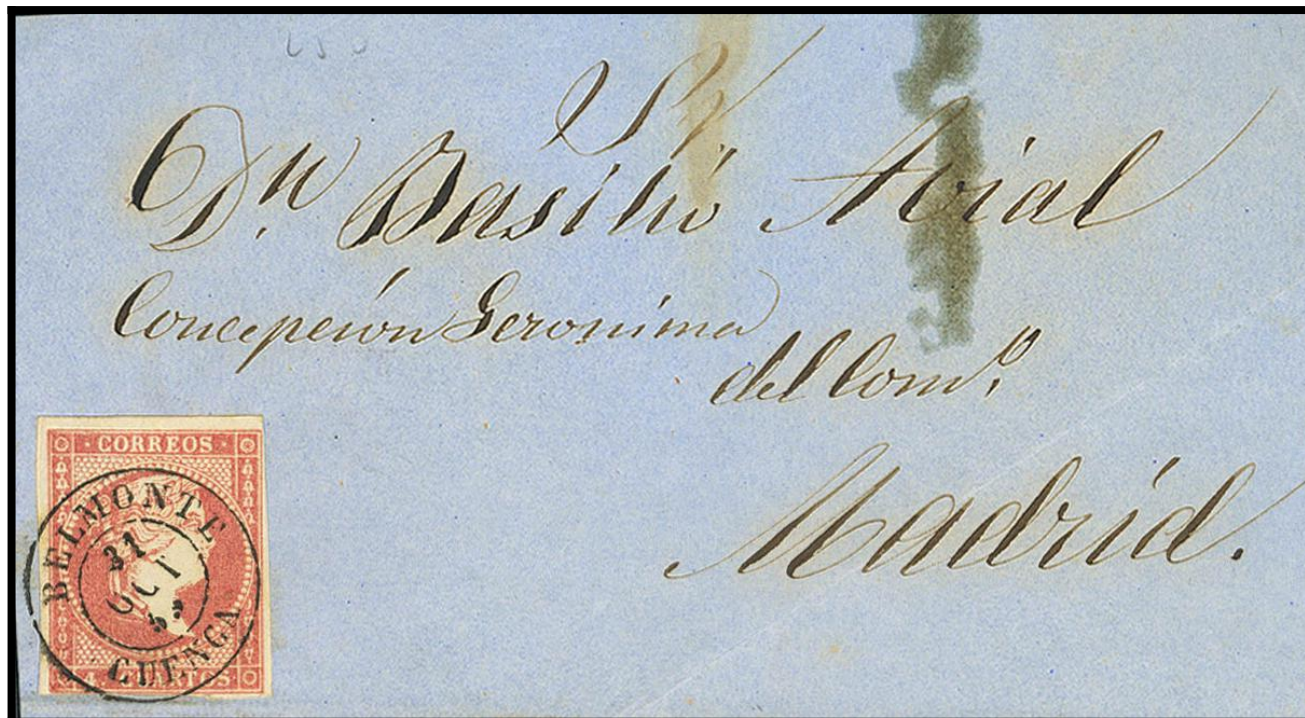 Sr
Dn Basilio Avial
Concepcion Geronima
del Como.
Madrid.
CORREOS
BELMONTE
31
OCT
CUENCA
4. CUARTOS